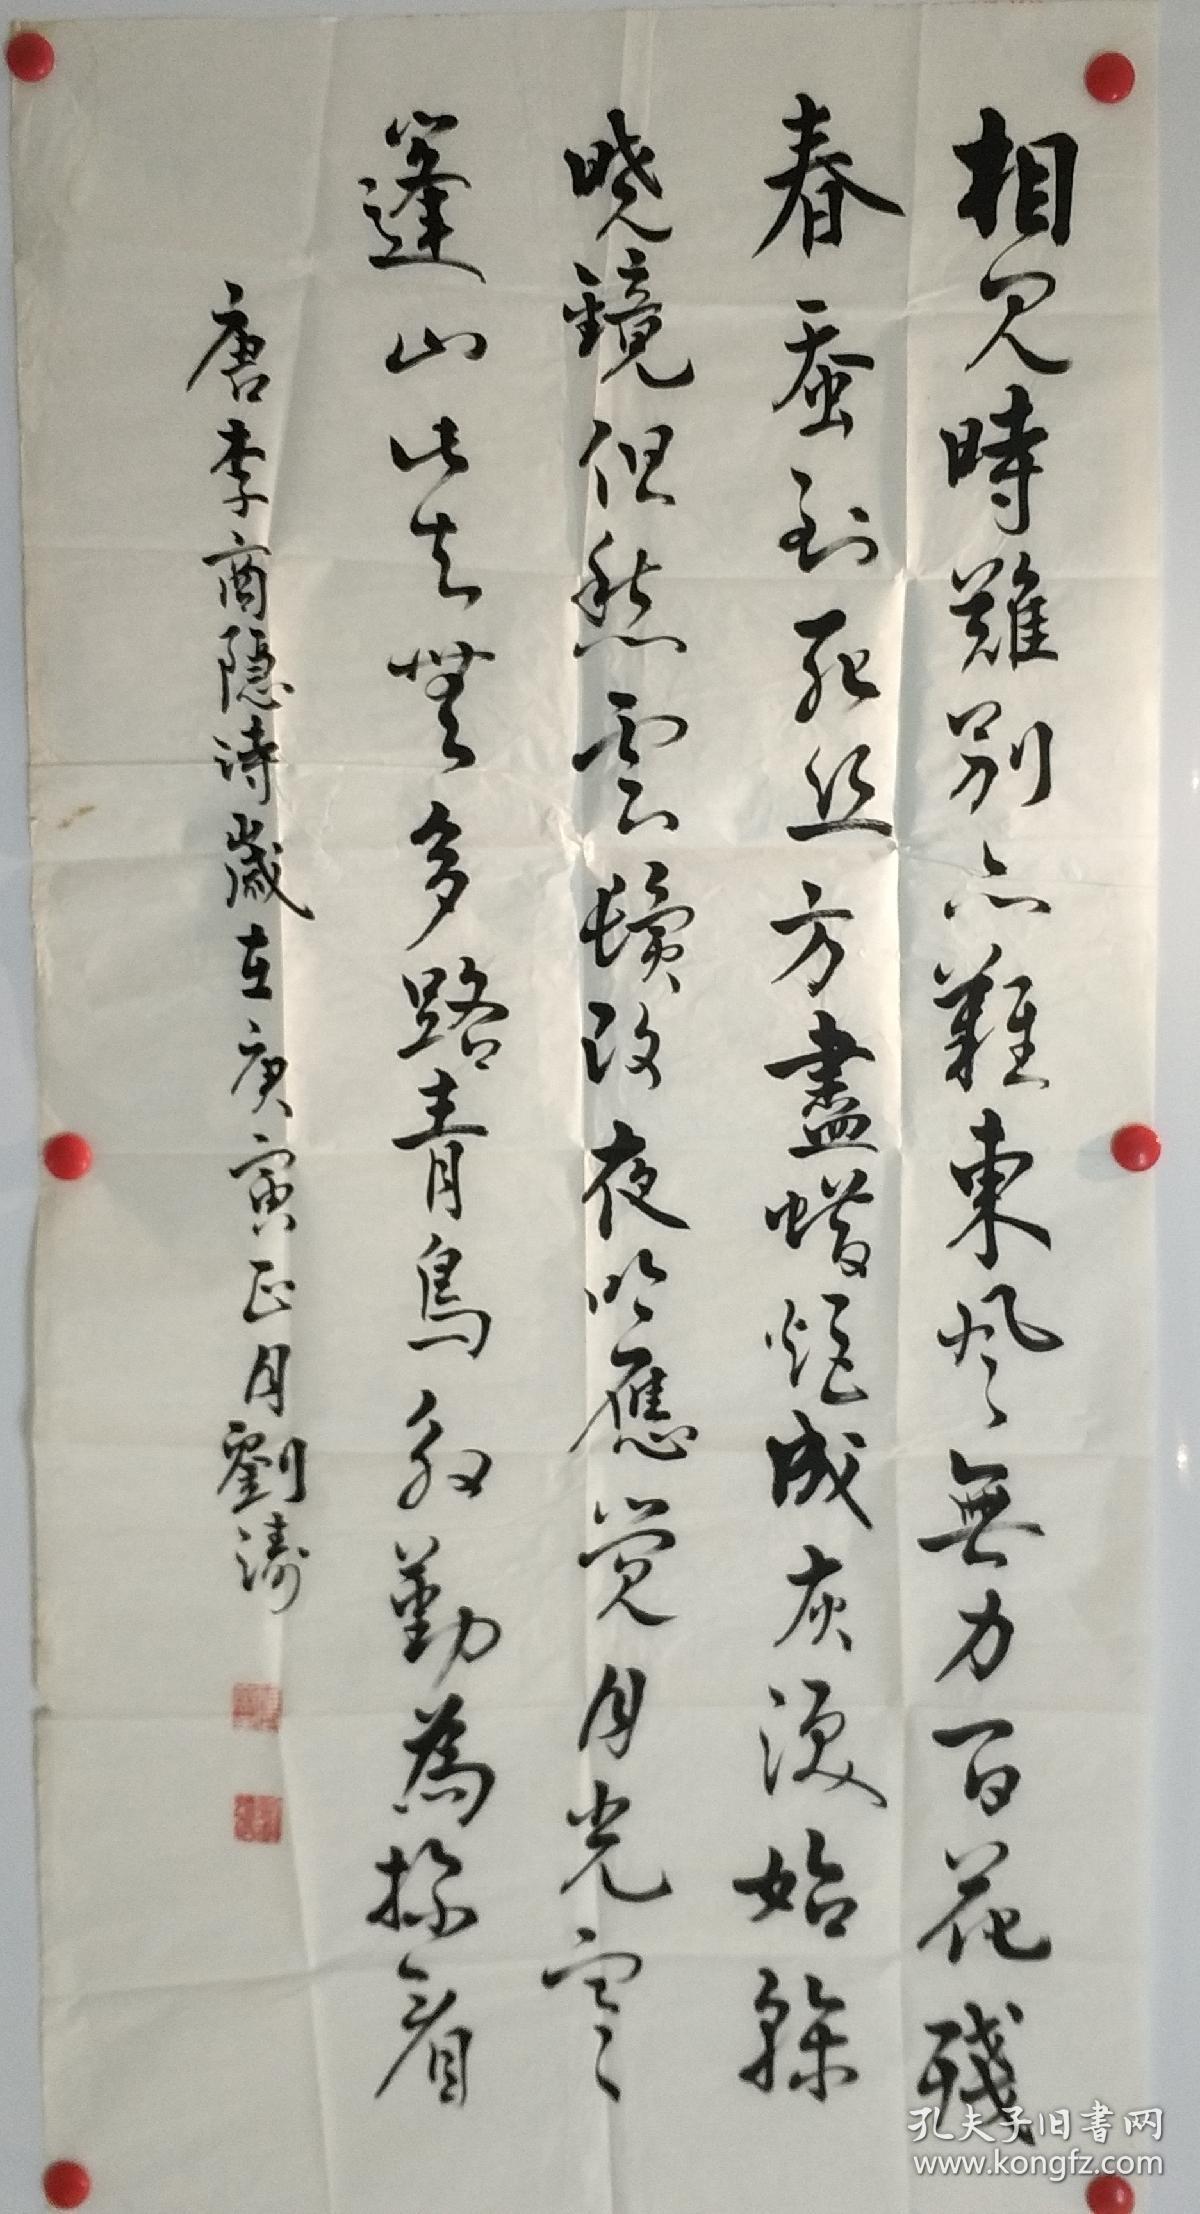 相见時難别亦難東风無力百花残
春蚕到死丝方盡蠟炬成灰淚始乾
晓鏡但愁雲鬓改夜吟應觉月光寒
蓬山此去無多路青鳥殷勤為探看
唐李商隐诗歲在庚寅正月劉濤
孔夫子旧書网
www.kongfz.com